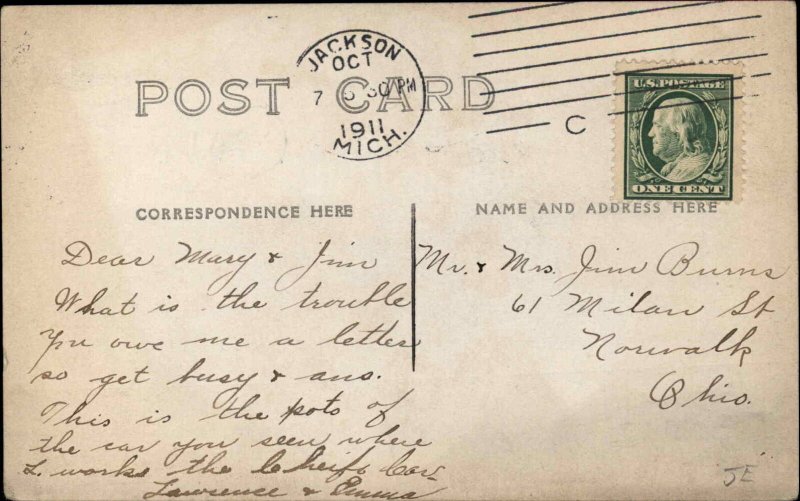 JACKSON
OCT
7 30 PM
1911
MICH.
C
U.S. POSTAGE
ONE CENT
POST CARD
CORRESPONDENCE HERE
NAME AND ADDRESS HERE
Dear Mary & Jim
What is the trouble
You owe me a letter
so get busy & ans.
This is the pots of
the car you seen where
L. works the Car.
Lawrence & Emma
Mr. & Mrs. Jim Burns
61 Milan St
Norwalk
Ohio.
JE